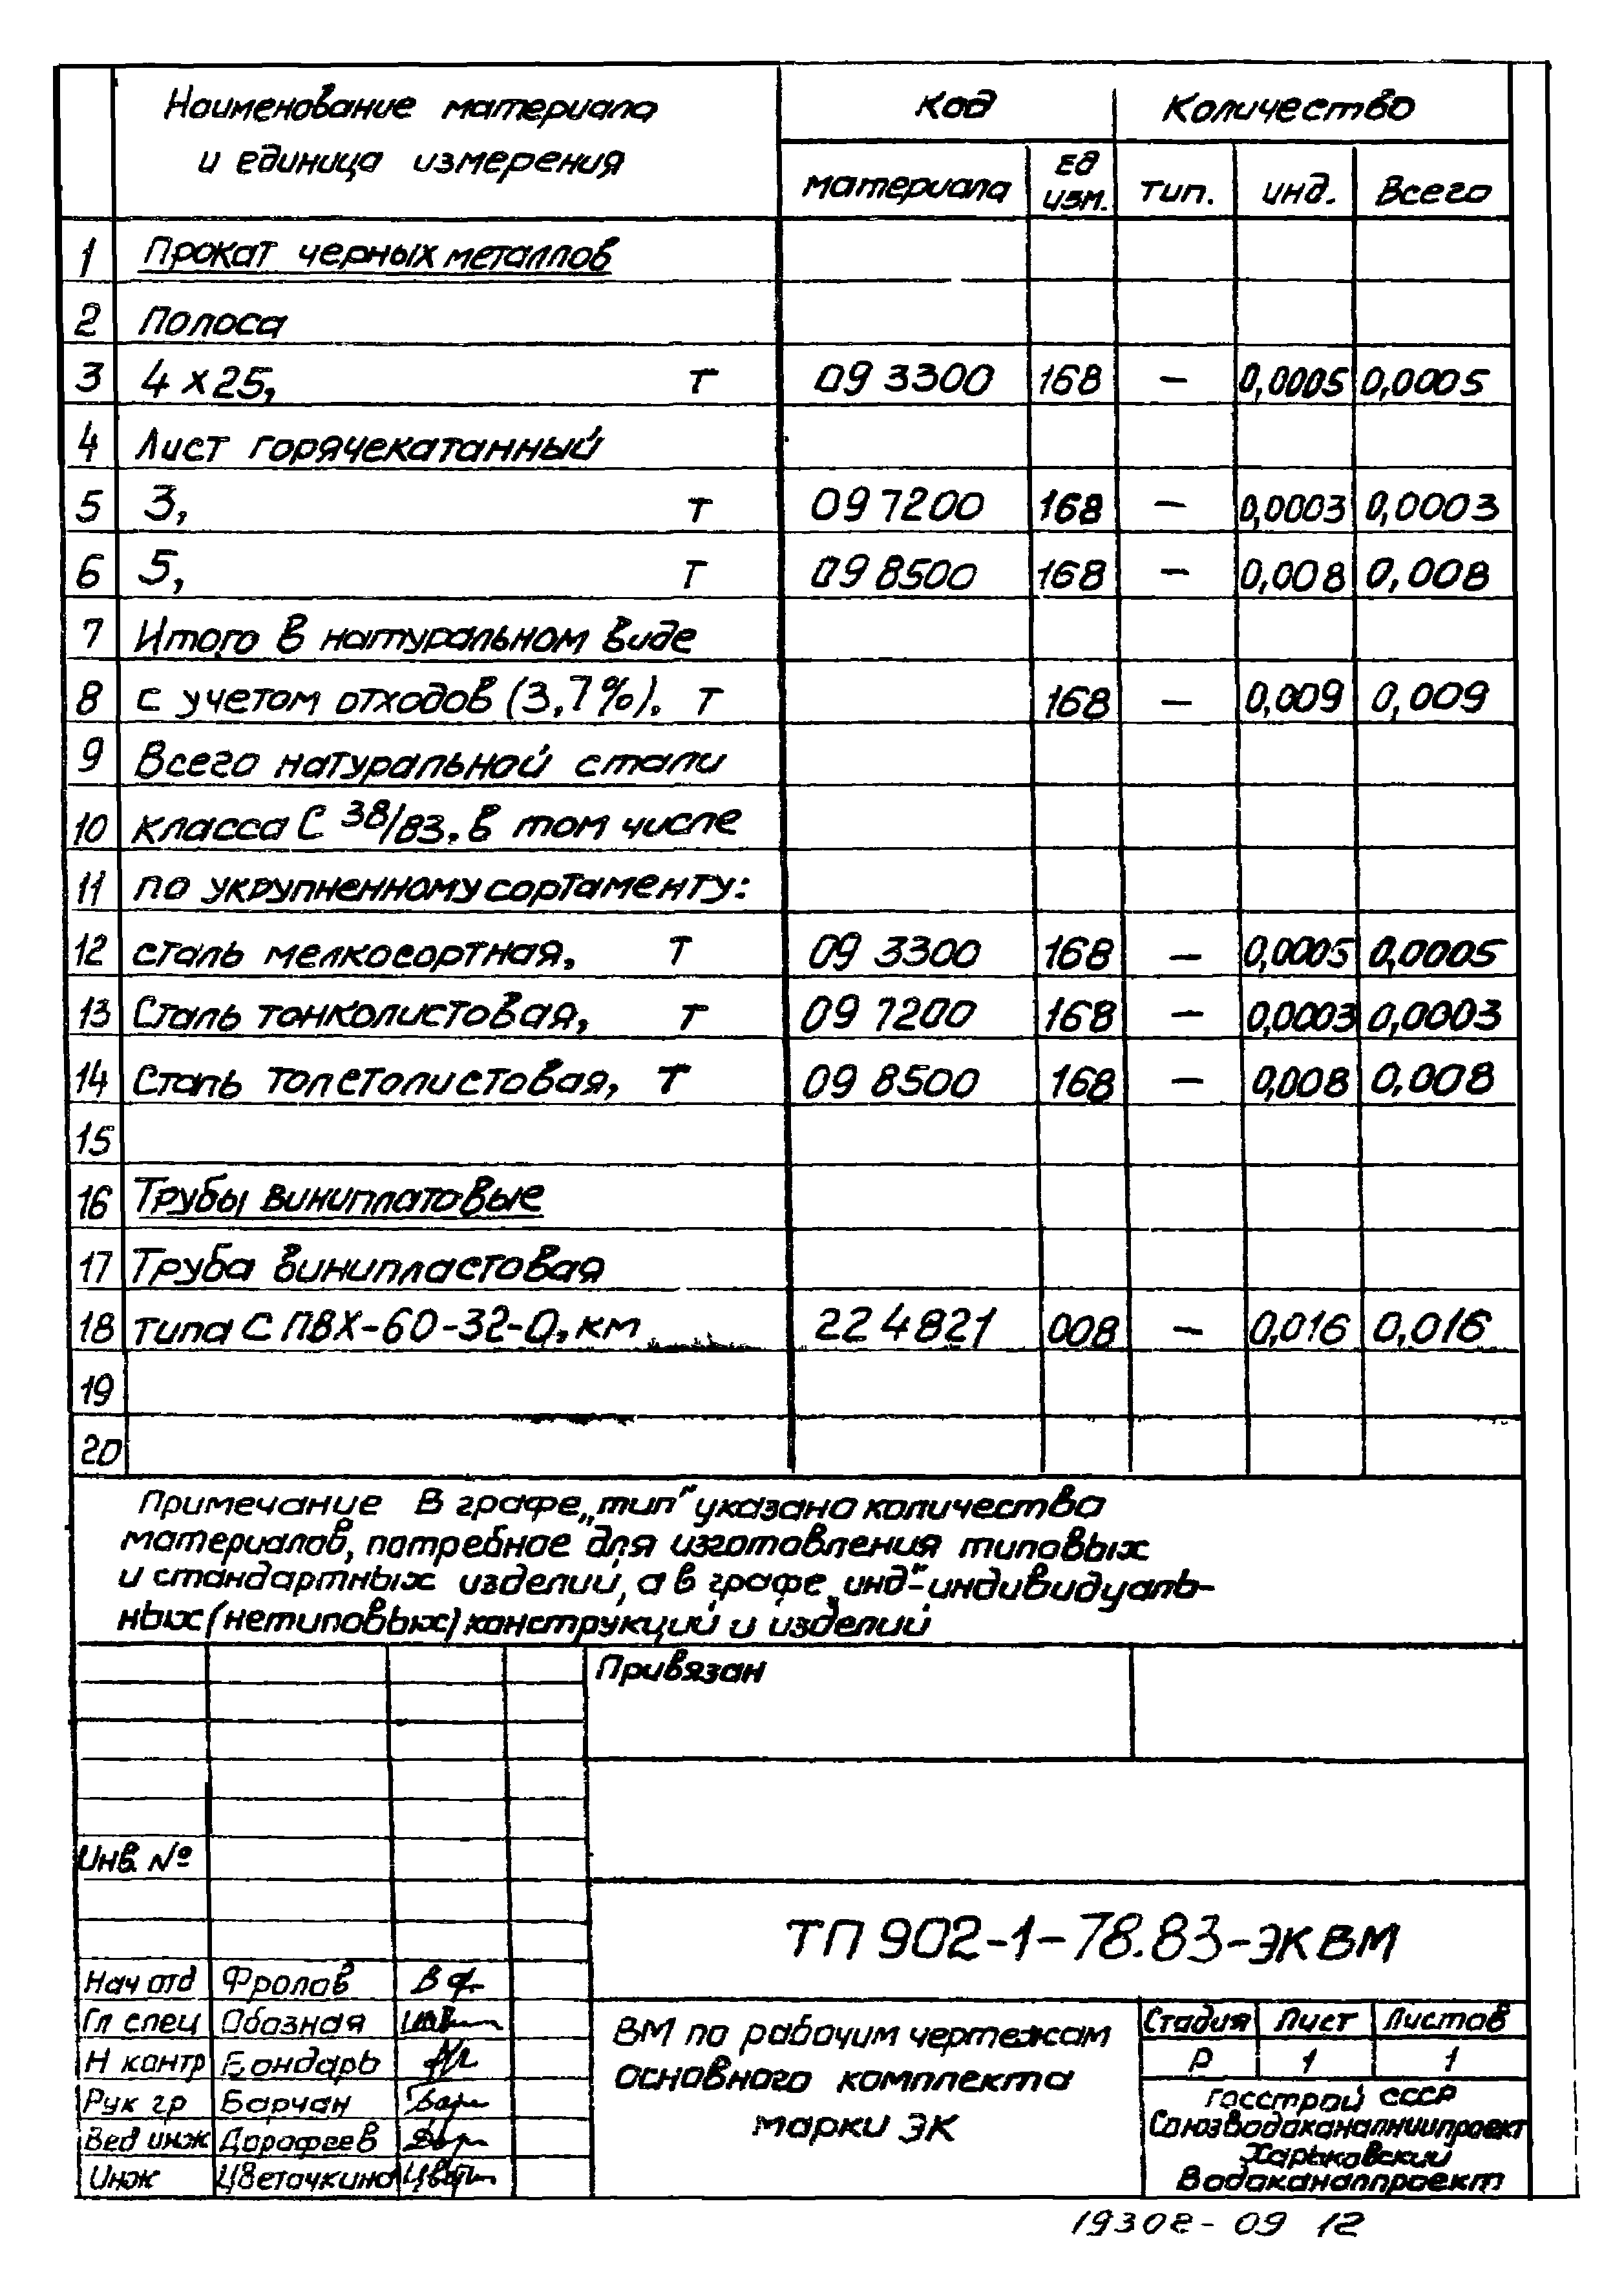 Наименование материала и единица измерения
Код
Количество
материала
Ед изм.
тип.
инд.
Всего
1 Прокат черных металлов
2 Полоса
3 4 х 25, т 09 3300 168 – 0,0005 0,0005
4 Лист горячекатанный
5 3, т 09 7200 168 – 0,0003 0,0003
6 5, т 09 8500 168 – 0,008 0,008
7 Итого в натуральном виде
8 с учетом отходов (3,7%). т 168 – 0,009 0,009
9 Всего натуральной стали
10 класса С 38/83, в том числе
11 по укрупненному сортаменту:
12 сталь мелкосортная, т 09 3300 168 – 0,0005 0,0005
13 Сталь тонколистовая, т 09 7200 168 – 0,0003 0,0003
14 Сталь толстолистовая, т 09 8500 168 – 0,008 0,008
15
16 Трубы виниплатовые
17 Труба винипластовая
18 типа С ПВХ-60-32-0, км 22 4821 008 – 0,016 0,016
19
20
Примечание В графе „тип" указано количество
материалов, потребное для изготовления типовых
и стандартных изделий, а в графе „инд"-индивидуаль-
ных (нетиповых) конструкций и изделий
Привязан
Инв. №
ТП 902-1-78.83-ЭК ВМ
Нач отд Фролов
Гл спец Обозная
Н контр Бондарь
Рук гр Барчан
Вед инж Дорофеев
Инж Цветочкина
ВМ по рабочим чертежам
основного комплекта
марки ЭК
Стадия Лист Листов
Р 1 1
Госстрой СССР
Союзводоканалниипроект
Харьковский
Водоканалпроект
19308-09 12